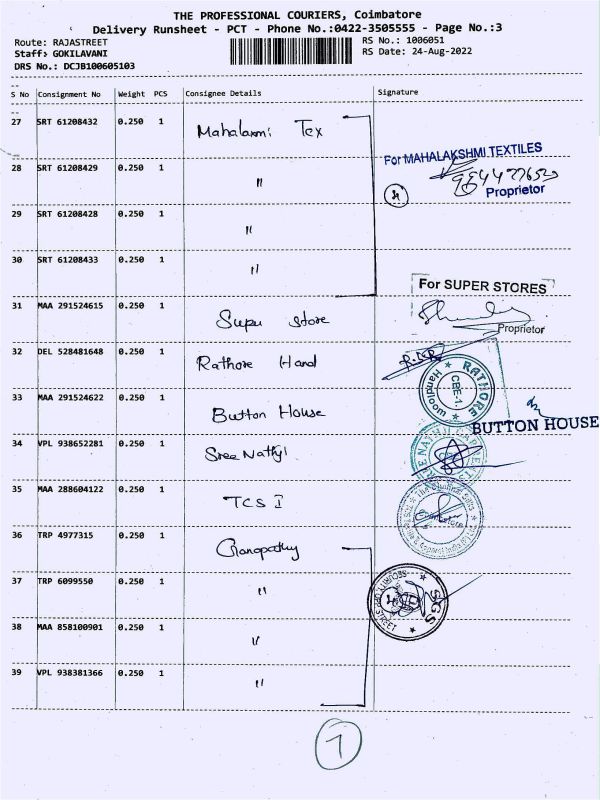 THE PROFESSIONAL COURIERS, Coimbatore
Delivery Runsheet - PCT - Phone No.:0422-3505555 - Page No.:3
Route: RAJASTREET RS No.: 1006051
Staff: GOKILAVANI RS Date: 24-Aug-2022
DRS No.: DCJB100605103
S No Consignment No Weight PCS Consignee Details Signature
27 SRT 61208432 0.250 1 Mahalaxmi Tex
For MAHALAKSHMI TEXTILES
28 SRT 61208429 0.250 1 "
4
Proprietor
29 SRT 61208428 0.250 1 "
30 SRT 61208433 0.250 1 "
For SUPER STORES
31 MAA 291524615 0.250 1 Super Store
Proprietor
32 DEL 528481648 0.250 1 Rathore Hand
RATHORE Handloom CBE-1
33 MAA 291524622 0.250 1 Button House
BUTTON HOUSE
34 VPL 938652281 0.250 1 Sree Nathji
35 MAA 288604122 0.250 1 TCS I
Coimbatore
36 TRP 4977315 0.250 1 Ganapathy
37 TRP 6099550 0.250 1 "
SGS STREET
38 MAA 858100901 0.250 1 "
39 VPL 938381366 0.250 1 "
7